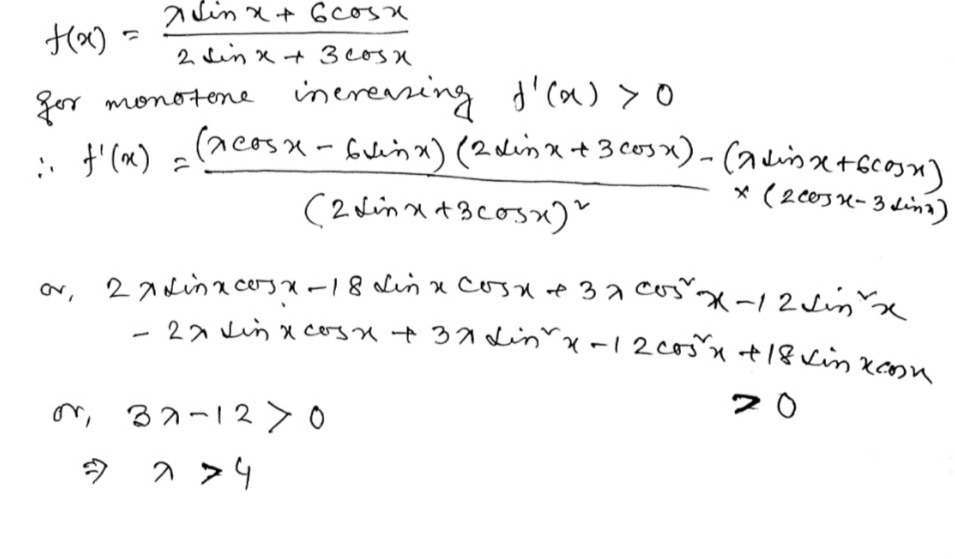 f(x) = (λ sin x + 6 cos x) / (2 sin x + 3 cos x)
for monotone increasing f'(x) > 0
∴ f'(x) = ((λ cos x - 6 sin x) (2 sin x + 3 cos x) - (λ sin x + 6 cos x) × (2 cos x - 3 sin x)) / (2 sin x + 3 cos x)²
or, 2λ sin x cos x - 18 sin x cos x + 3λ cos² x - 12 sin² x
- 2λ sin x cos x + 3λ sin² x - 12 cos² x + 18 sin x cos x
> 0
or, 3λ - 12 > 0
⇒ λ > 4